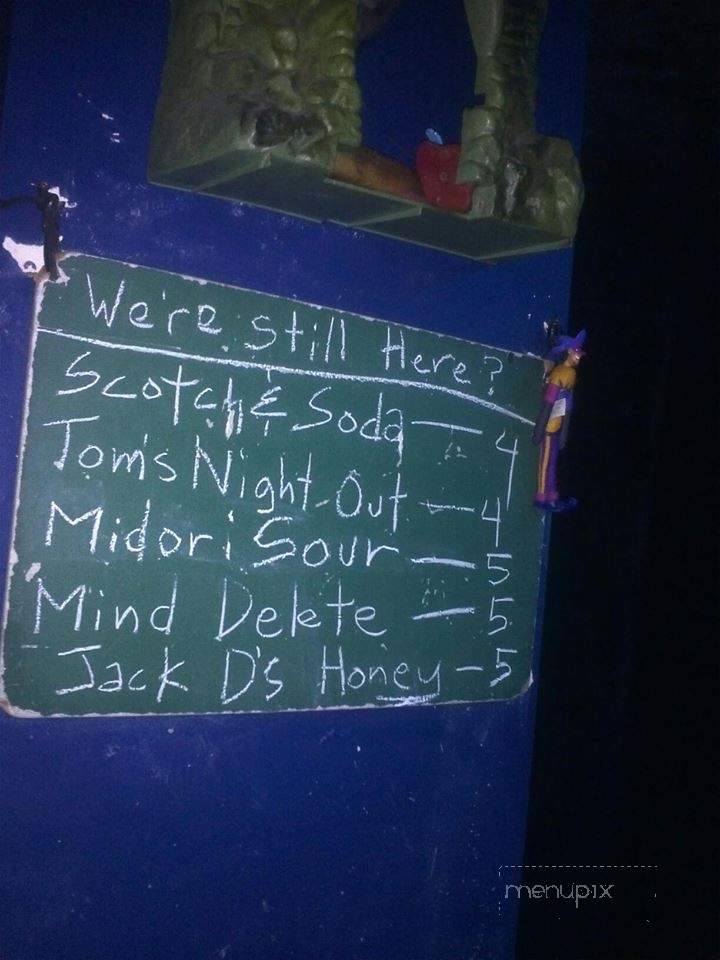 We're still Here?
Scotch & Soda — 4
Tom's Night Out — 4
Midori Sour — 5
Mind Delete — 5
Jack D's Honey — 5
menupix